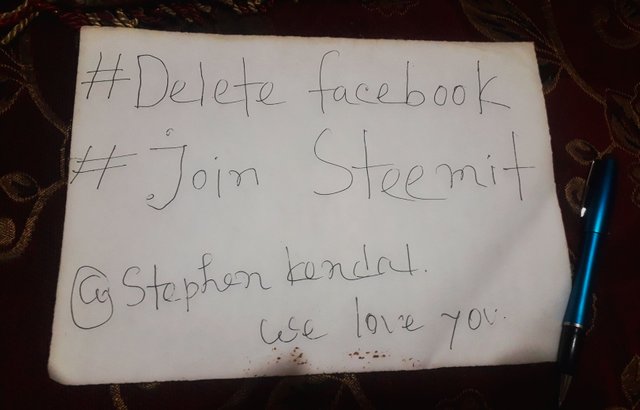 #Delete facebook
#Join Steemit
@Stephen kendal.
we love you.